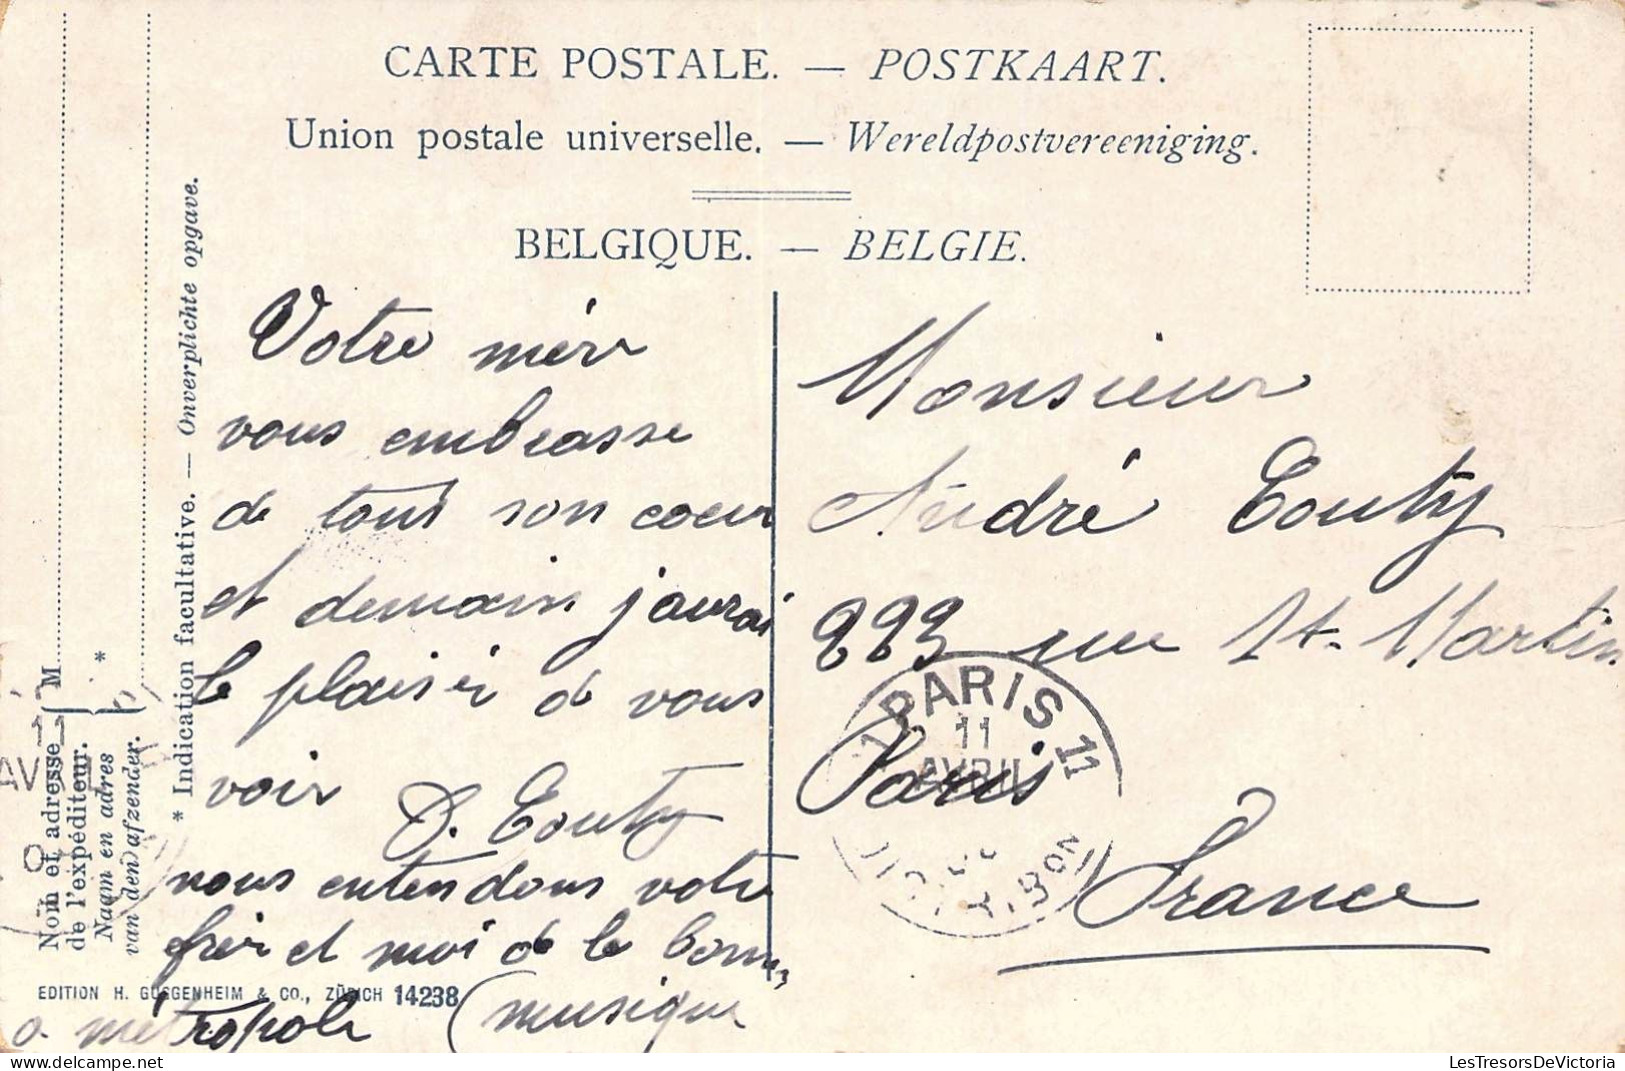 CARTE POSTALE. — POSTKAART.
Union postale universelle. — Wereldpostvereeniging.
BELGIQUE. — BELGIE.
M
*
Nom et adresse
de l'expéditeur.
Naam en adres
van den afzender.
* Indication facultative. — Onverplichte opgave.
Votre mère
vous embrasse
de tout son coeur
et demain j'aurai
le plaisir de vous
voir
Couty
nous entendons votre
frère et moi de la bonne
(musique
a métropole
Monsieur
André Couty
223 rue St-Martin
Paris
France
PARIS 11
11
AVRIL
BON
AVR
EDITION H. GUGGENHEIM & CO., ZÜRICH 14238
LesTresorsDeVictoria.com